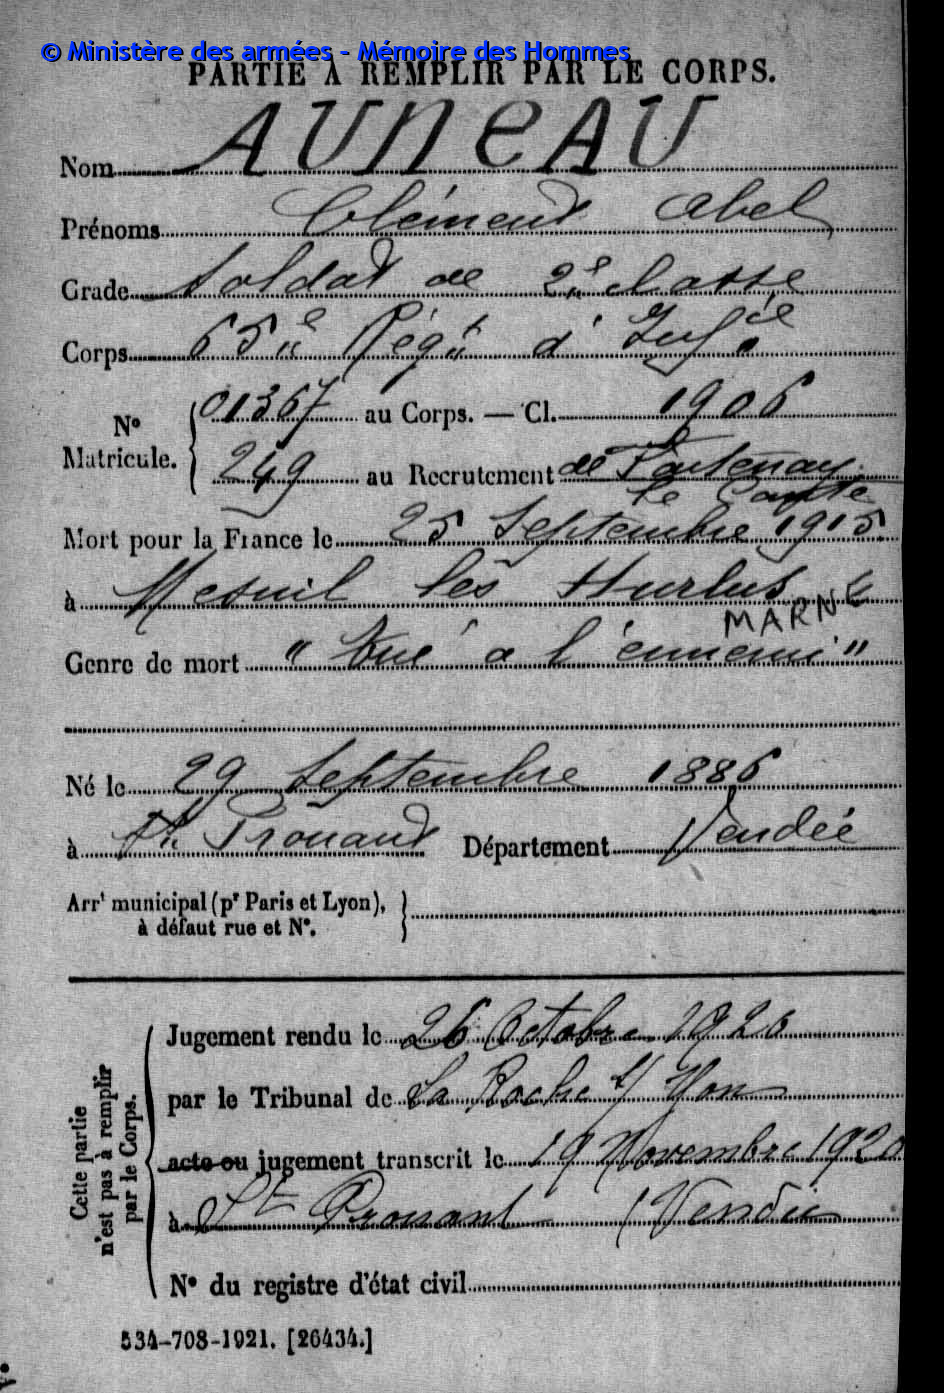 © Ministère des armées - Mémoire des Hommes
PARTIE À REMPLIR PAR LE CORPS.
Nom AUNEAU
Prénoms Clément Abel
Grade Soldat de 2e classe
Corps 65e Régt d'Infie
No Matricule. 01367 au Corps. — Cl. 1906
249 au Recrutement de Fontenay
le Comte
Mort pour la France le 25 Septembre 1915
à Mesnil les Hurlus
MARNE
Genre de mort "Tué à l'ennemi"
Né le 29 Septembre 1886
à St Prouant Département Vendée
Arrt municipal (pr Paris et Lyon),
à défaut rue et No.
Cette partie
n'est pas à remplir
par le Corps.
Jugement rendu le 26 Octobre 1920
par le Tribunal de La Roche s/ Yon
acte ou jugement transcrit le 19 Novembre 1920
à St Prouant (Vendée
No du registre d'état civil
534-708-1921. [26434.]